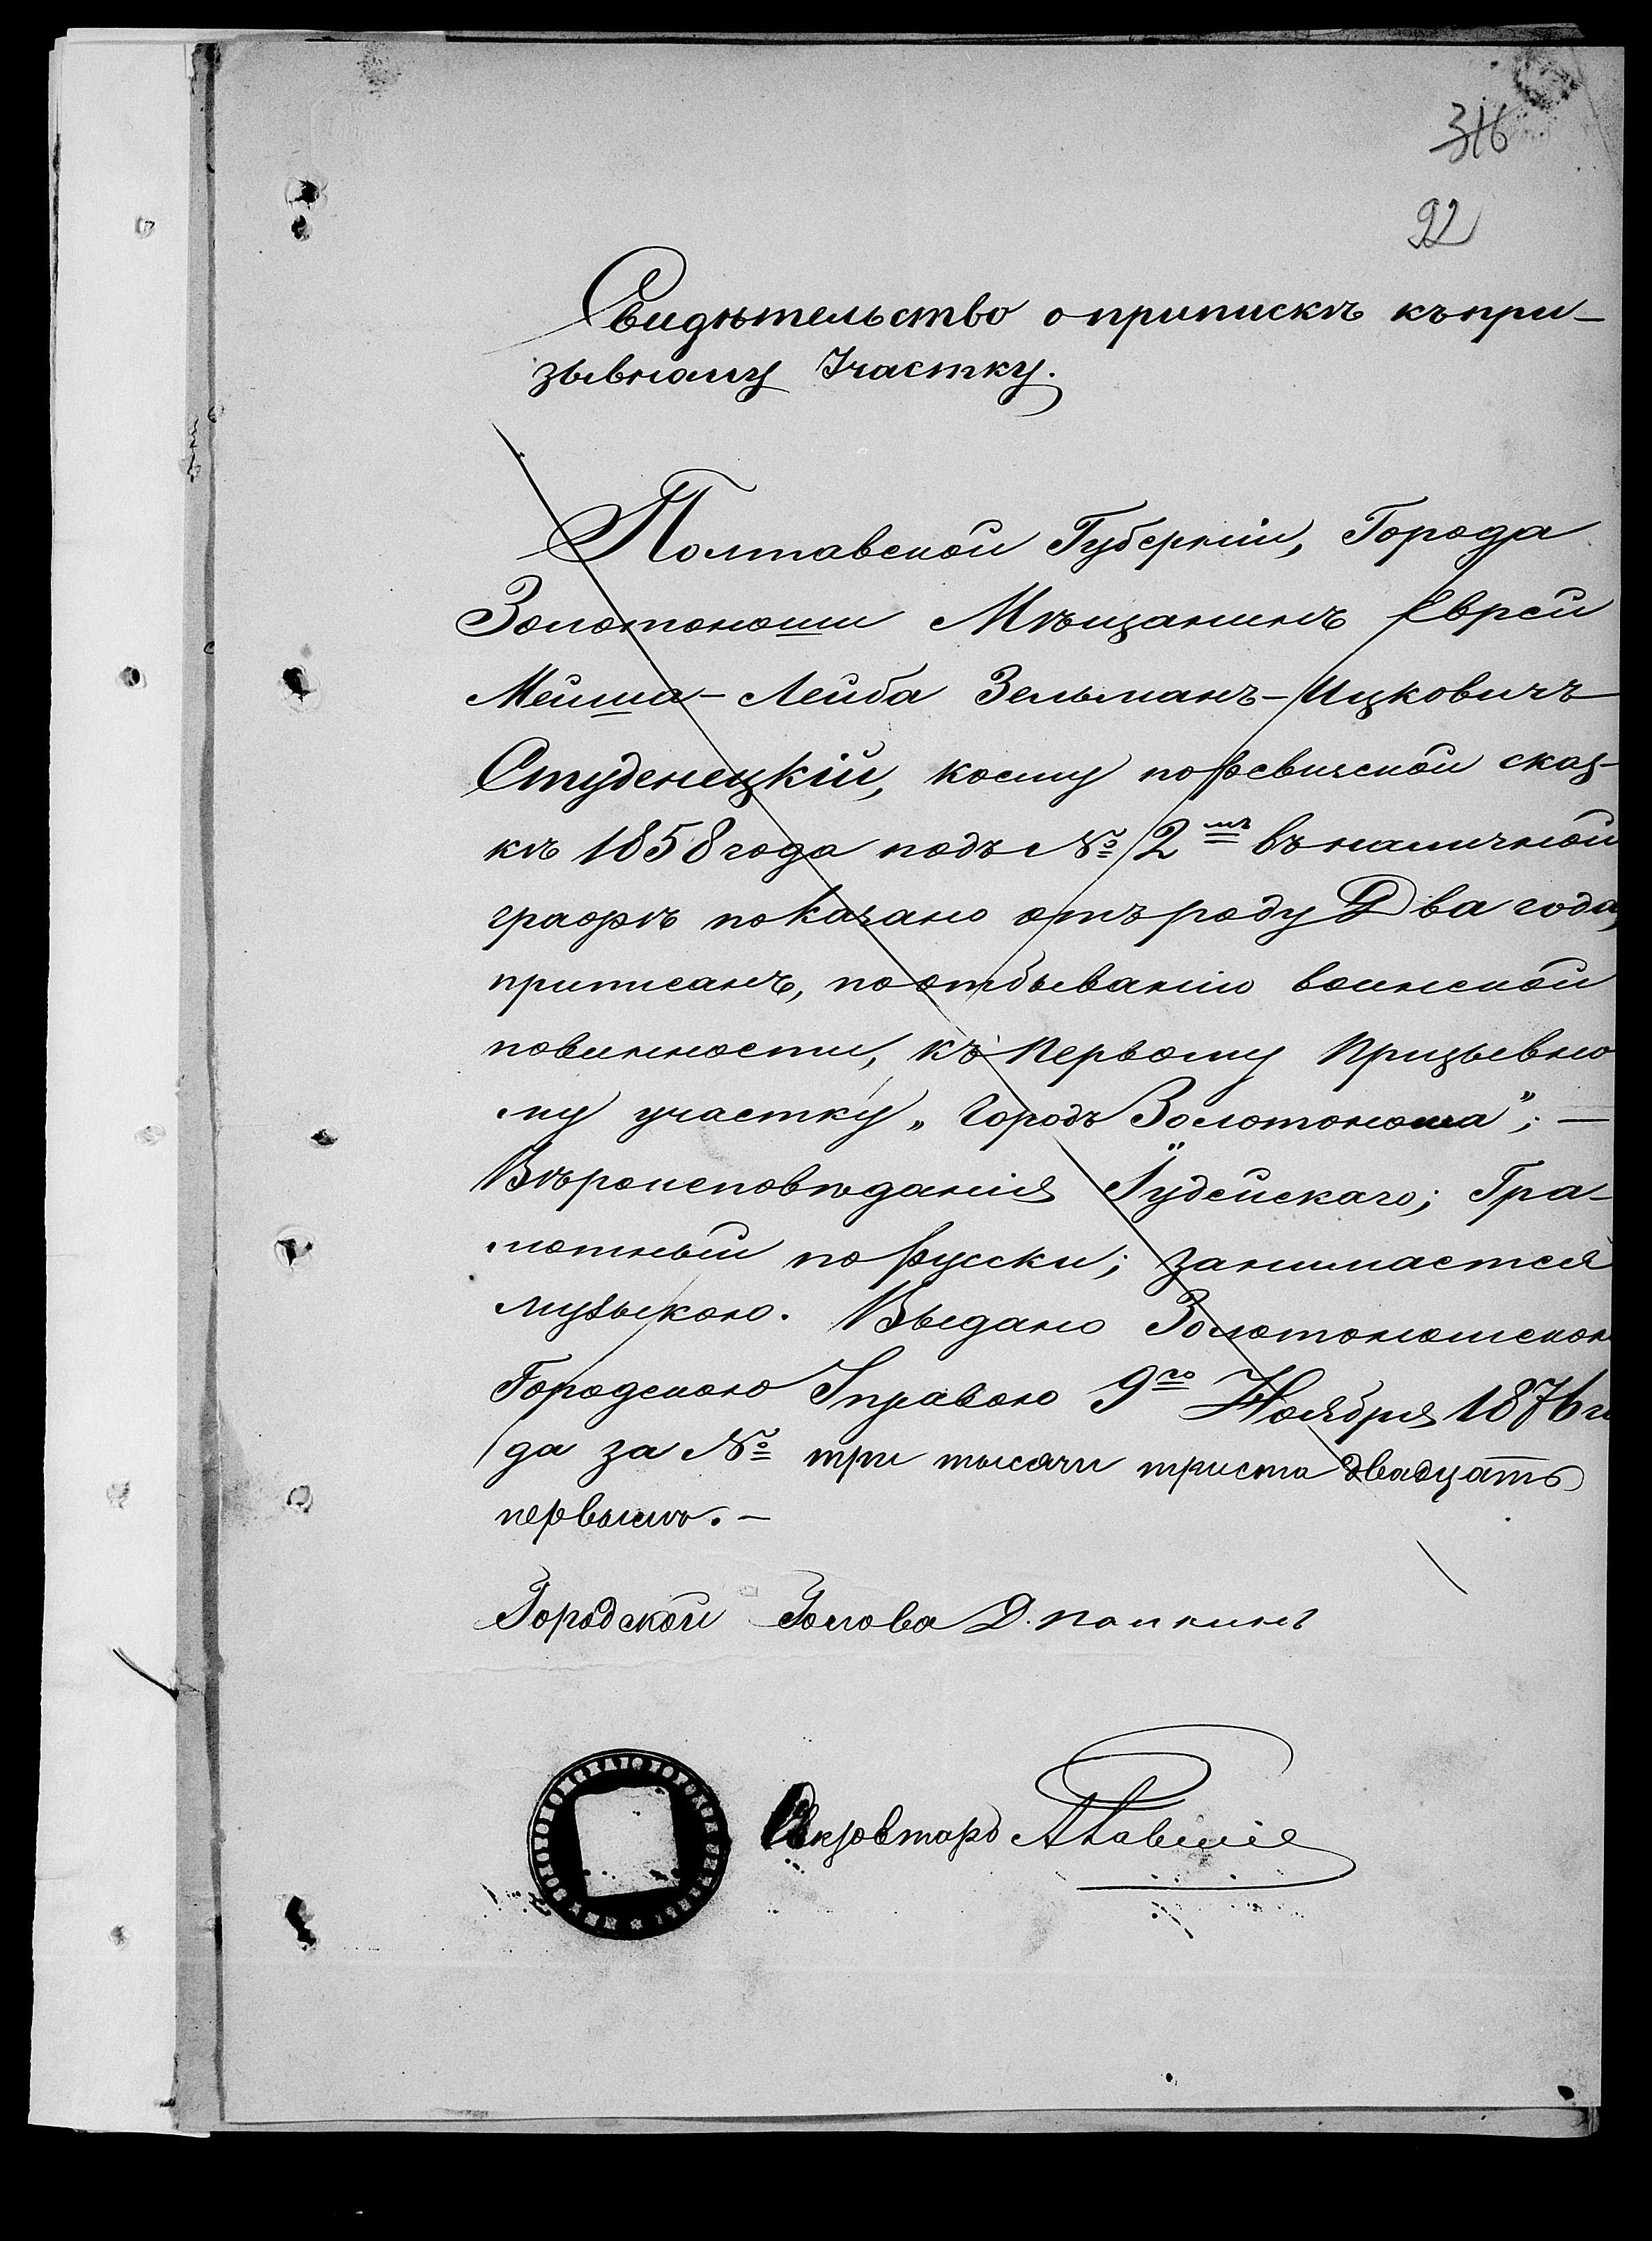 316
92
Свидѣтельство о припискѣ къ при-
зывному Участку.
Полтавской Губерніи, Города
Золотоноши Мѣщанинъ Еврей
Мейша-Лейба Зельманъ-Ицковичъ
Студенецкій, коему по ревизской сказ-
кѣ 1858 года подъ № 2мъ въ наличной
графѣ показано отъ роду Два года,
приписанъ, по отбыванію воинской
повинности, къ Первому Призывно
му участку „Городъ Золотоноша";—
Вѣроисповѣданія Іудейскаго; Гра-
мотный по русски; занимается
музыкою. Выдано Золотоношскою
Городскою Управою 9го Ноября 1876 го
да за № три тысячи триста двадцать
первымъ.—
Городской Голова Д.
Секретарь